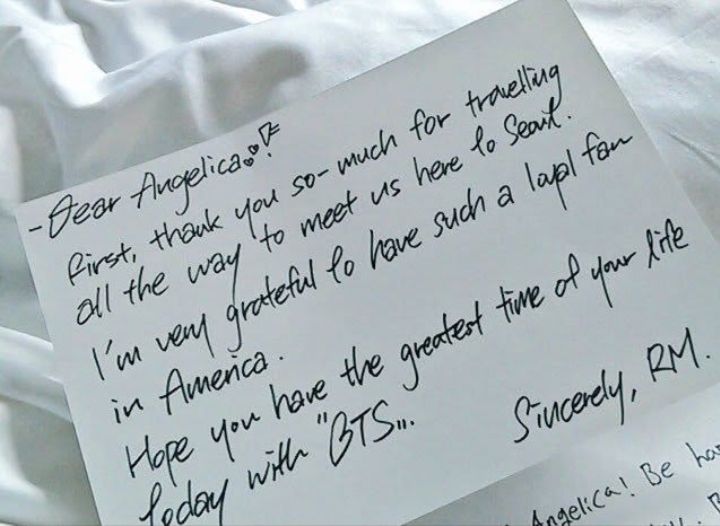 -Dear Angelica
First, thank you so-much for travelling
all the way to meet us here to Seoul.
I'm very grateful to have such a loyal fan
in America.
Hope you have the greatest time of your life
today with "BTS".
Sincerely, RM.
Angelica! Be